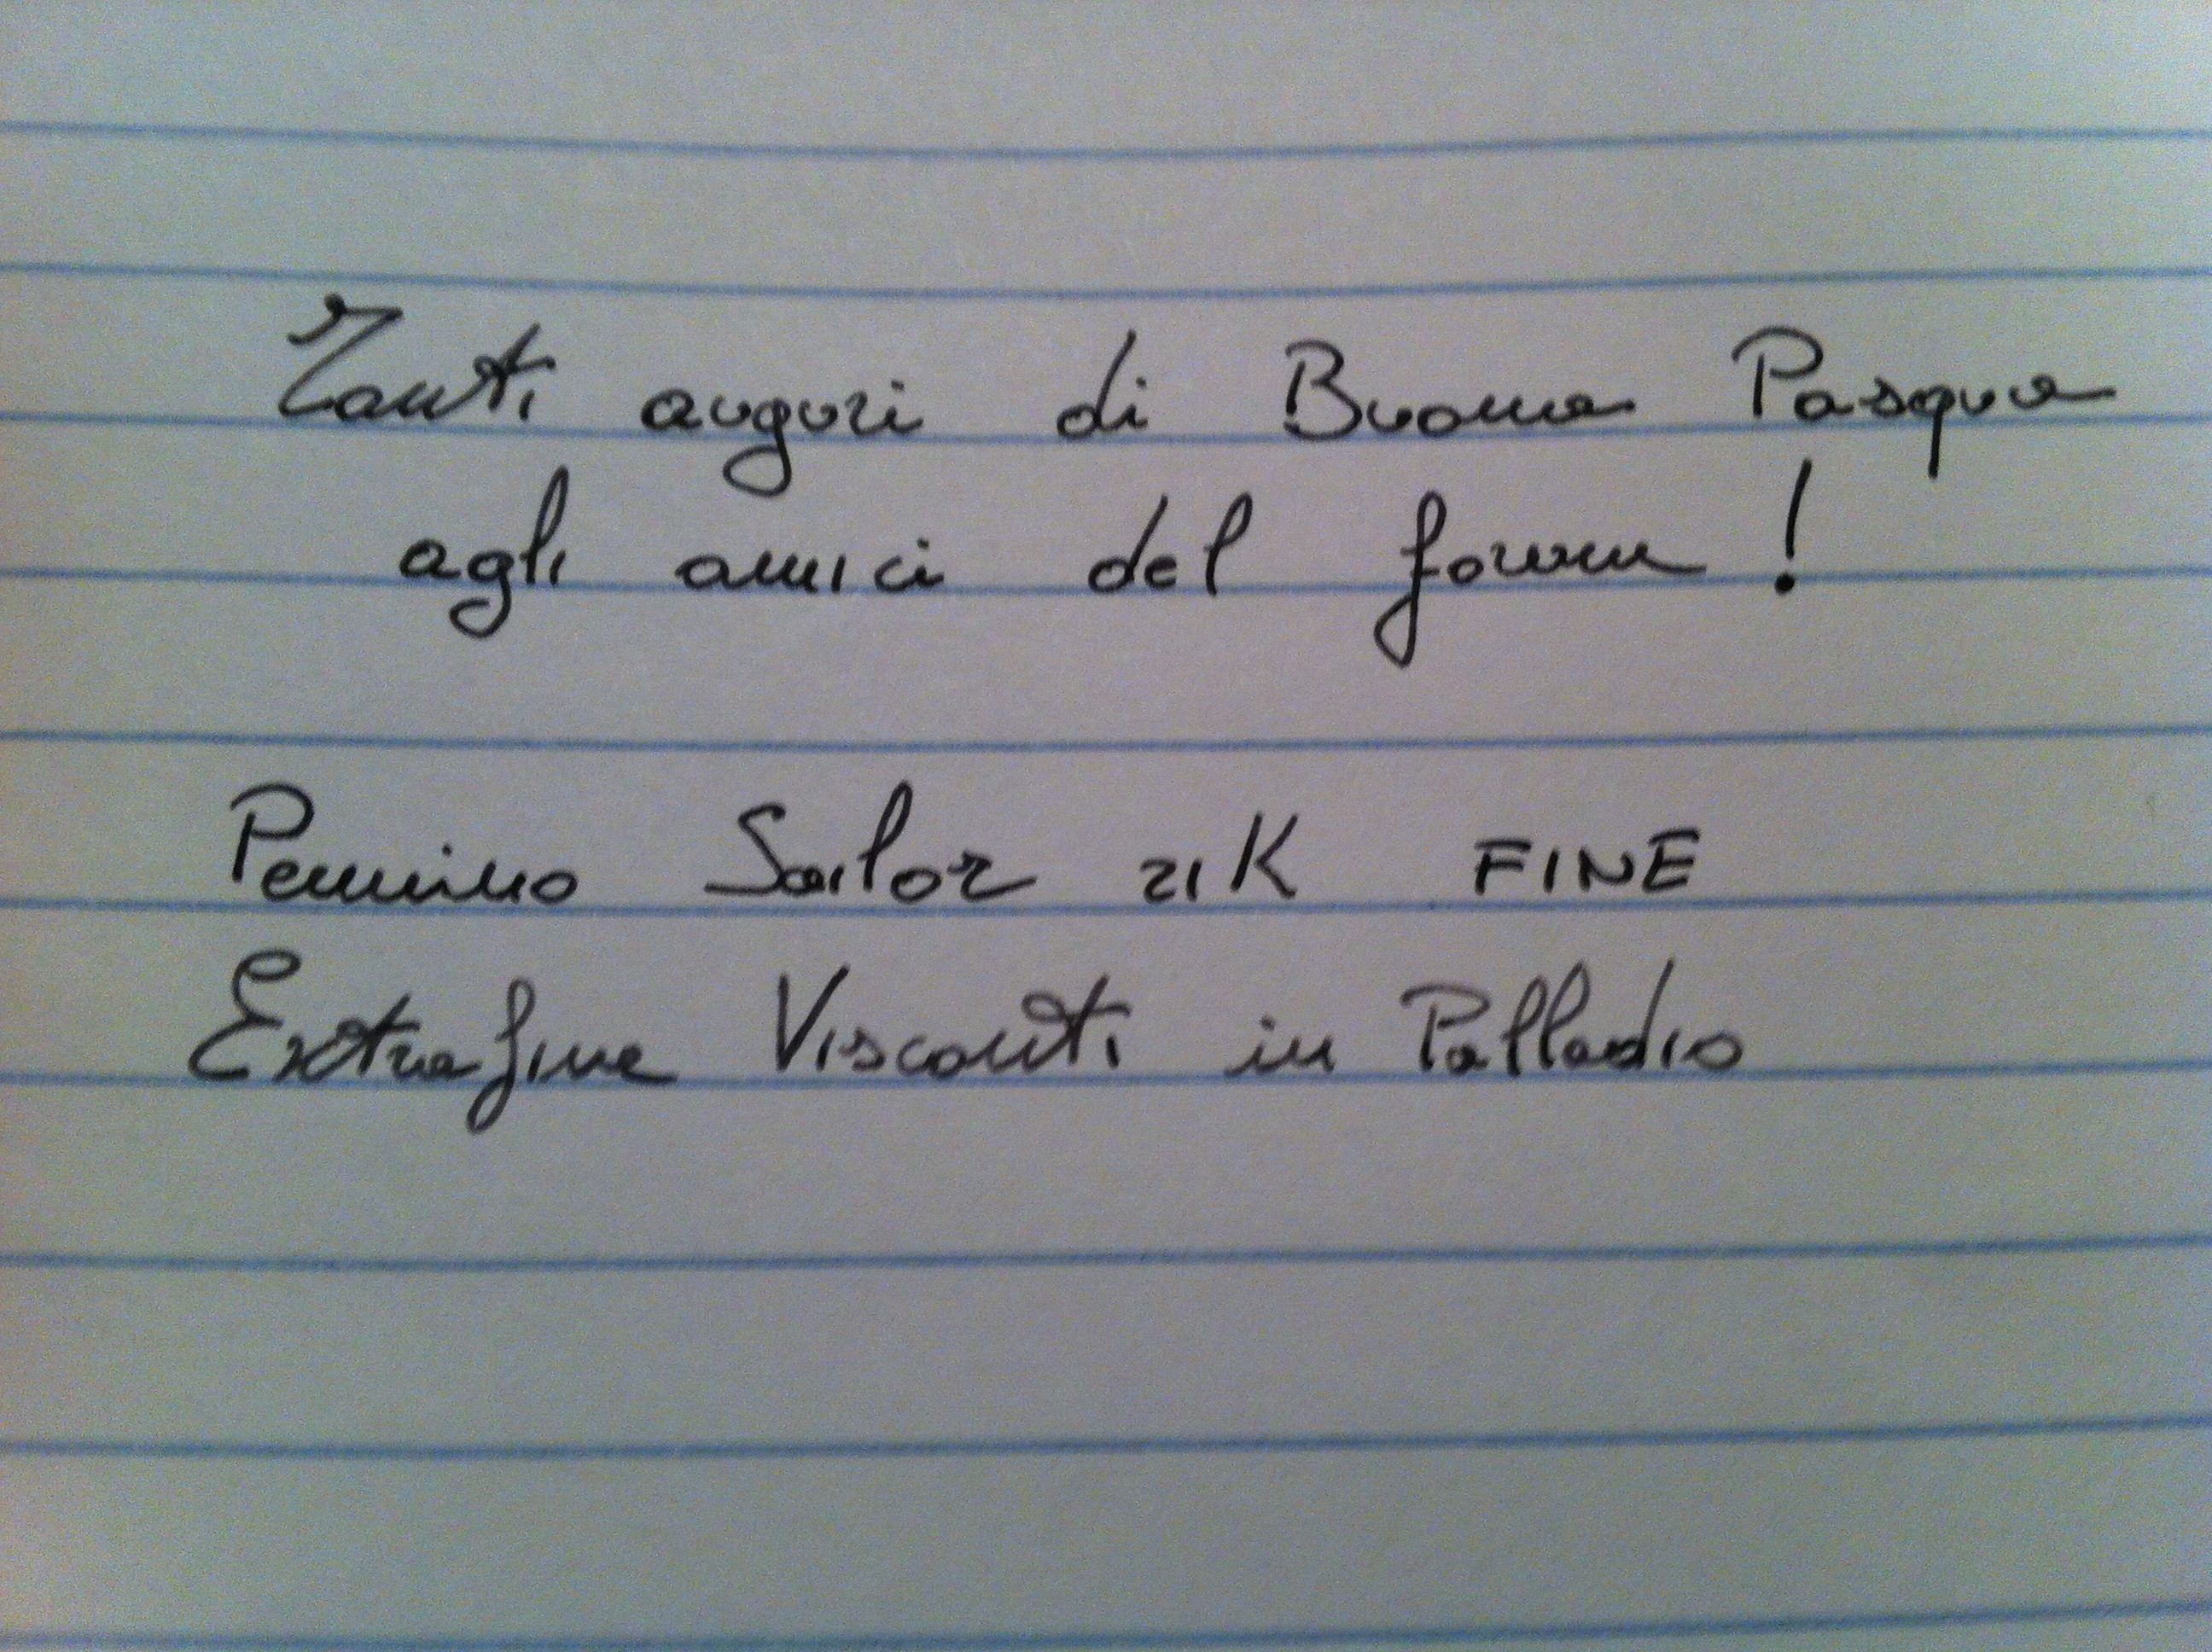 Tanti auguri di Buona Pasqua
agli amici del forum!
Pennino Sailor 21K FINE
Extrafine Visconti in Palladio